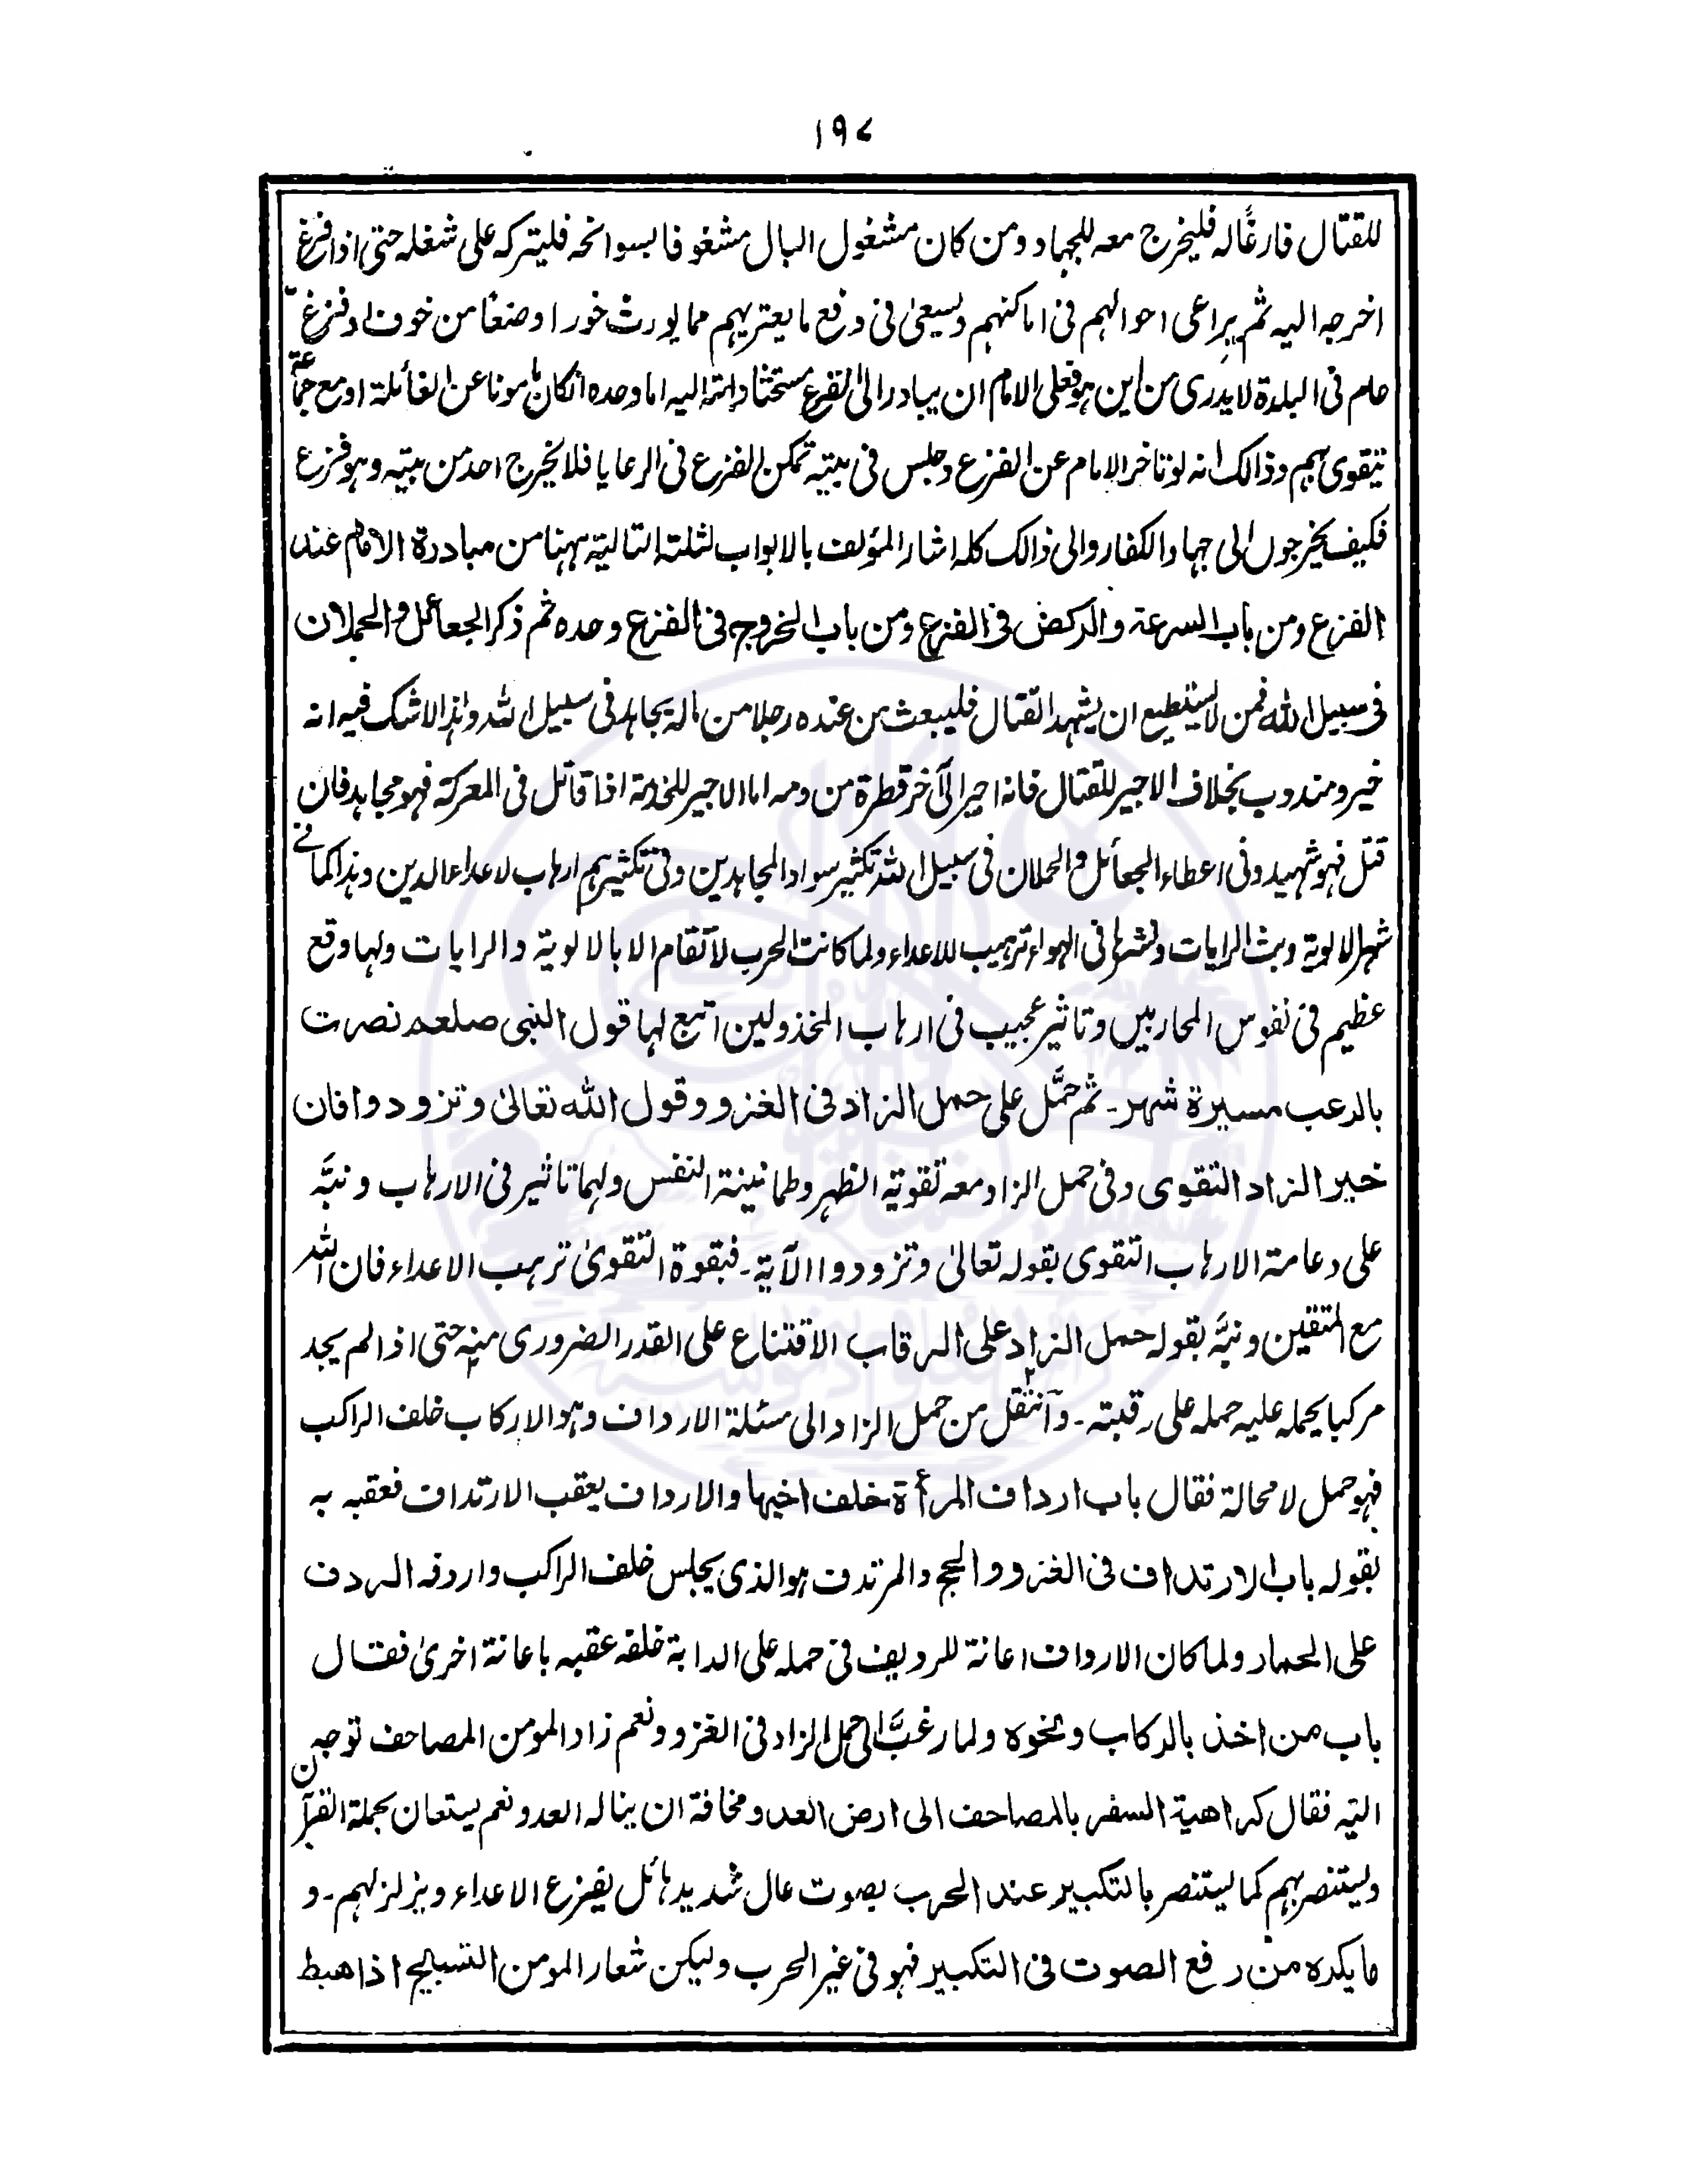 ١٩٧
للقتال فارغًا له فليخرج معه للجهاد ومن كان مشغول البال مشغوفا بسوانحه فليتركه على شغله حتى اذا فرغ
اخرجه اليه ثم يراعى احوالهم فى اماكنهم ويسعىٰ فى دفع ما يعتريهم مما يورث خورا وضعفا من خوف او فزغ
عام فى البلدة لا يدرى من اين هو فعلى الامام ان يبادر الى الفزع مستحثا دابته اليه اما وحده ان كان مامونا عن الغائلة او مع جماعة
يتقوى بهم وذالك انه لو تاخر الامام عن الفزع وجلس فى بيته تمكن الفزع فى الرعايا فلا يخرج احد من بيته وهو فزع
فكيف يخرجون الى جهاد الكفار والى ذالك كله اشار المؤلف بالابواب الثلثة التالية ههنا من مبادرة الامام عند
الفزع ومن باب السرعة والركض فى الفزع ومن باب الخروج فى الفزع وحده ثم ذكر الجعائل والحملان
فى سبيل الله فمن لا يستطيع ان يشهد القتال فليبعث من عنده رجلا من ماله يجاهد فى سبيل الله وهذا لا شك فيه انه
خير ومندوب بخلاف الاجير للقتال فانه اجير الى آخر قطرة من دمه اما الاجير للخدمة اذا قاتل فى المعركة فهو مجاهد فان
قتل فهو شهيد وفى اعطاء الجعائل والحملان فى سبيل الله تكثير سواد المجاهدين وفى تكثيرهم ارهاب لاعداء الدين وهذا كما فى
شهر الالوية وبث الرايات ونشرها فى الهواء ترهيب للاعداء ولما كانت الحرب لا تقام الا بالالوية والرايات ولها وقع
عظيم فى نفوس المحاربين وتاثير عجيب فى ارهاب المخذولين اتبع لها قول النبى صلعم نصرت
بالرعب مسيرة شهر ـ ثم حمَّل على حمل الزاد فى الغزو وقول الله تعالىٰ وتزودوا فان
خير الزاد التقوى وفى حمل الزاد معه تقوية الظهر وطمانينة النفس ولهما تاثير فى الارهاب ونبَّه
على دعامة الارهاب التقوى بقوله تعالىٰ وتزودوا الآية ـ فبقوة التقوىٰ ترهب الاعداء فان الله
مع المتقين ونبَّه بقوله حمل الزاد على الرقاب الاقتناع على القدر الضرورى منه حتى اذا لم يجد
مركبا يحمله عليه حمله على رقبته ـ وانتقل من حمل الزاد الى مسئلة الارداف وهو الاركاب خلف الراكب
فهو حمل لا محالة فقال باب ارداف المرأة خلف اخيها والارداف يعقب الارتداف فعقبه به
بقوله باب الارتداف فى الغزو والحج والمرتدف هو الذى يجلس خلف الراكب واردفه الردف
على الحمار ولما كان الارداف اعانة للرديف فى حمله على الدابة خلفه عقبه باعانة اخرىٰ فقال
باب من اخذ بالركاب ونحوه ولما رغَّب الى حمل الزاد فى الغزو ونعم زاد المومن المصاحف توجه
اليه فقال كراهية السفر بالمصاحف الى ارض العدو مخافة ان يناله العدو ونعم يستعان بحملة القرآن
ويستنصر بهم كما يستنصر بالتكبير عند الحرب بصوت عال شديد هائل يفزع الاعداء ويزلزلهم ـ و
ما يكره من رفع الصوت فى التكبير فهو فى غير الحرب وليكن شعار المومن التسبيح اذا هبط